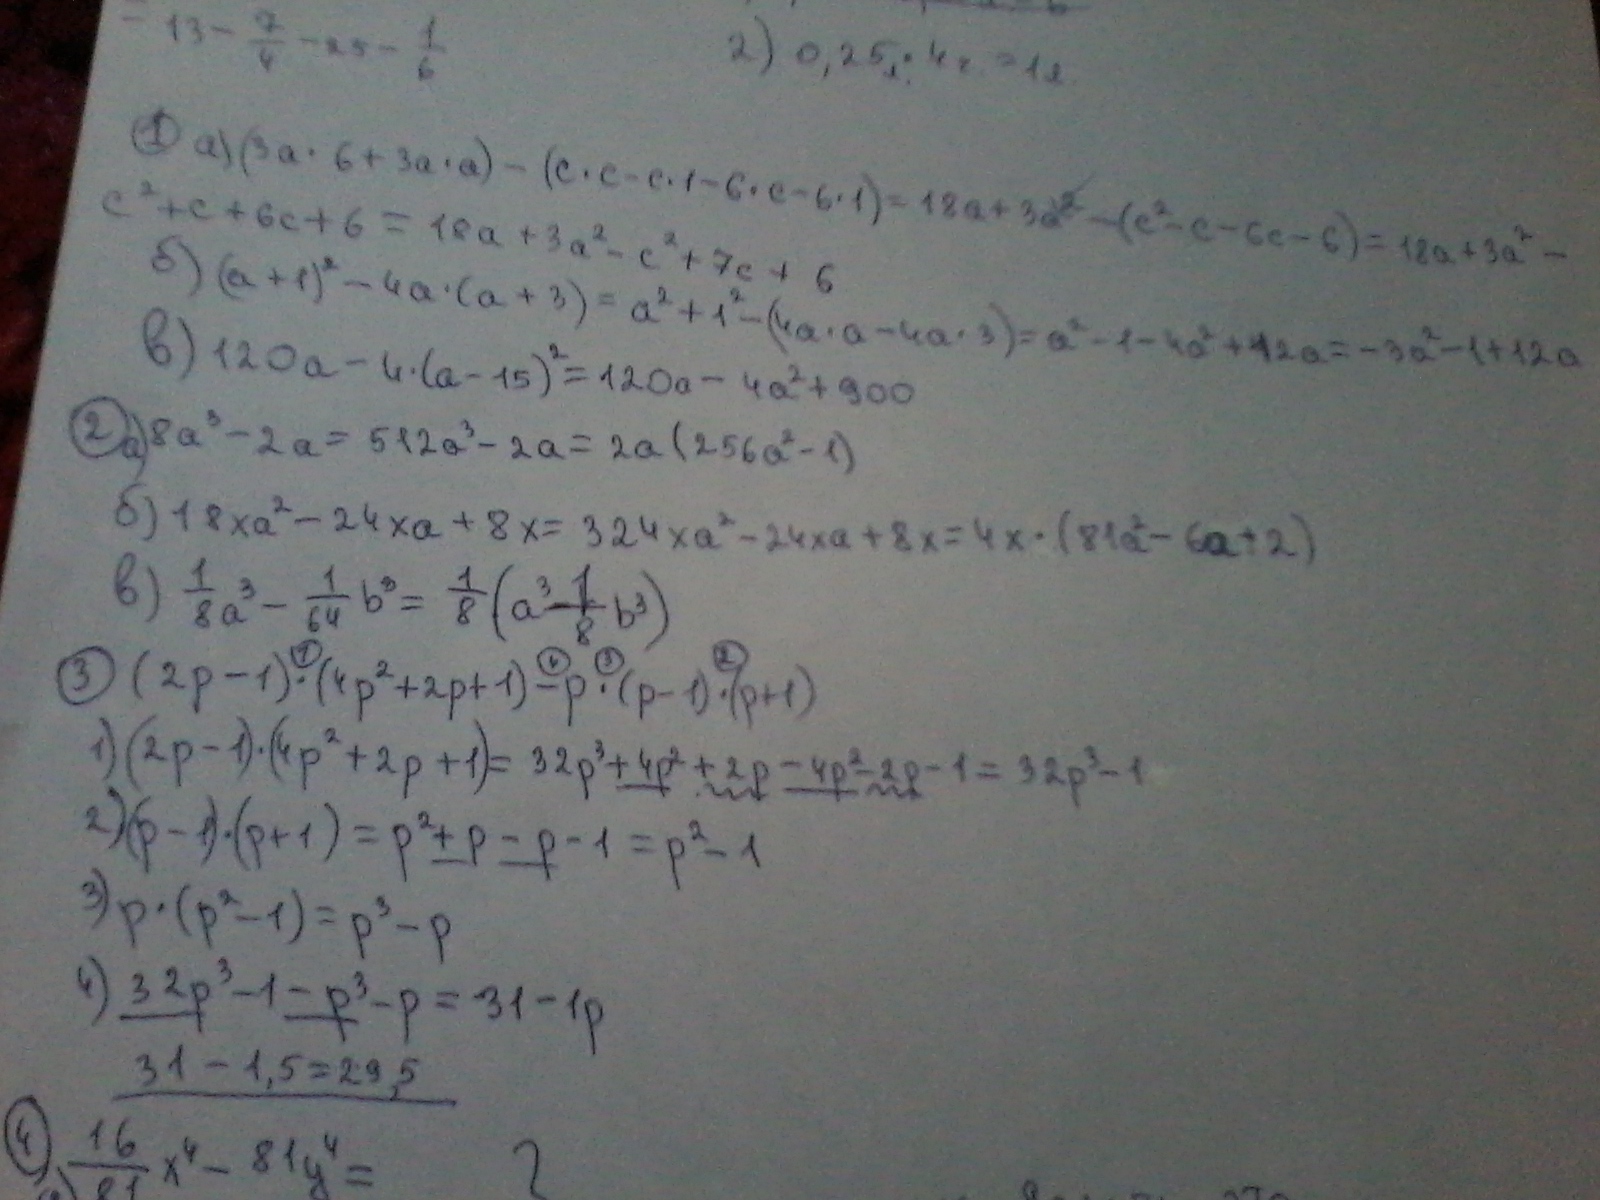 13 - 7/4 - 25 - 1/6
2) 0,25 · 4
① а) (3a · 6 + 3a · a) - (c · c - c · 1 - 6 · c - 6 · 1) = 18a + 3a² - (c² - c - 6c - 6) = 18a + 3a² -
c² + c + 6c + 6 = 18a + 3a² - c² + 7c + 6
б) (a + 1)² - 4a · (a + 3) = a² + 1² - (4a · a - 4a · 3) = a² - 1 - 4a² + 12a = -3a² - 1 + 12a
в) 120a - 4 · (a - 15)² = 120a - 4a² + 900
② а) 8a³ - 2a = 512a³ - 2a = 2a (256a² - 1)
б) 18xa² - 24xa + 8x = 324xa² - 24xa + 8x = 4x · (81a² - 6a + 2)
в) 1/8 a³ - 1/64 b³ = 1/8 (a³ - 1/8 b³)
③ (2p - 1) ·① (4p² + 2p + 1) -④ p ·③ (p - 1) ·② (p + 1)
1) (2p - 1) · (4p² + 2p + 1) = 32p³ + 4p² + 2p - 4p² - 2p - 1 = 32p³ - 1
2) (p - 1) · (p + 1) = p² + p - p - 1 = p² - 1
3) p · (p² - 1) = p³ - p
4) 32p³ - 1 - p³ - p = 31 - 1p
31 - 1,5 = 29,5
④ а) 16/81 x⁴ - 81y⁴ = ?